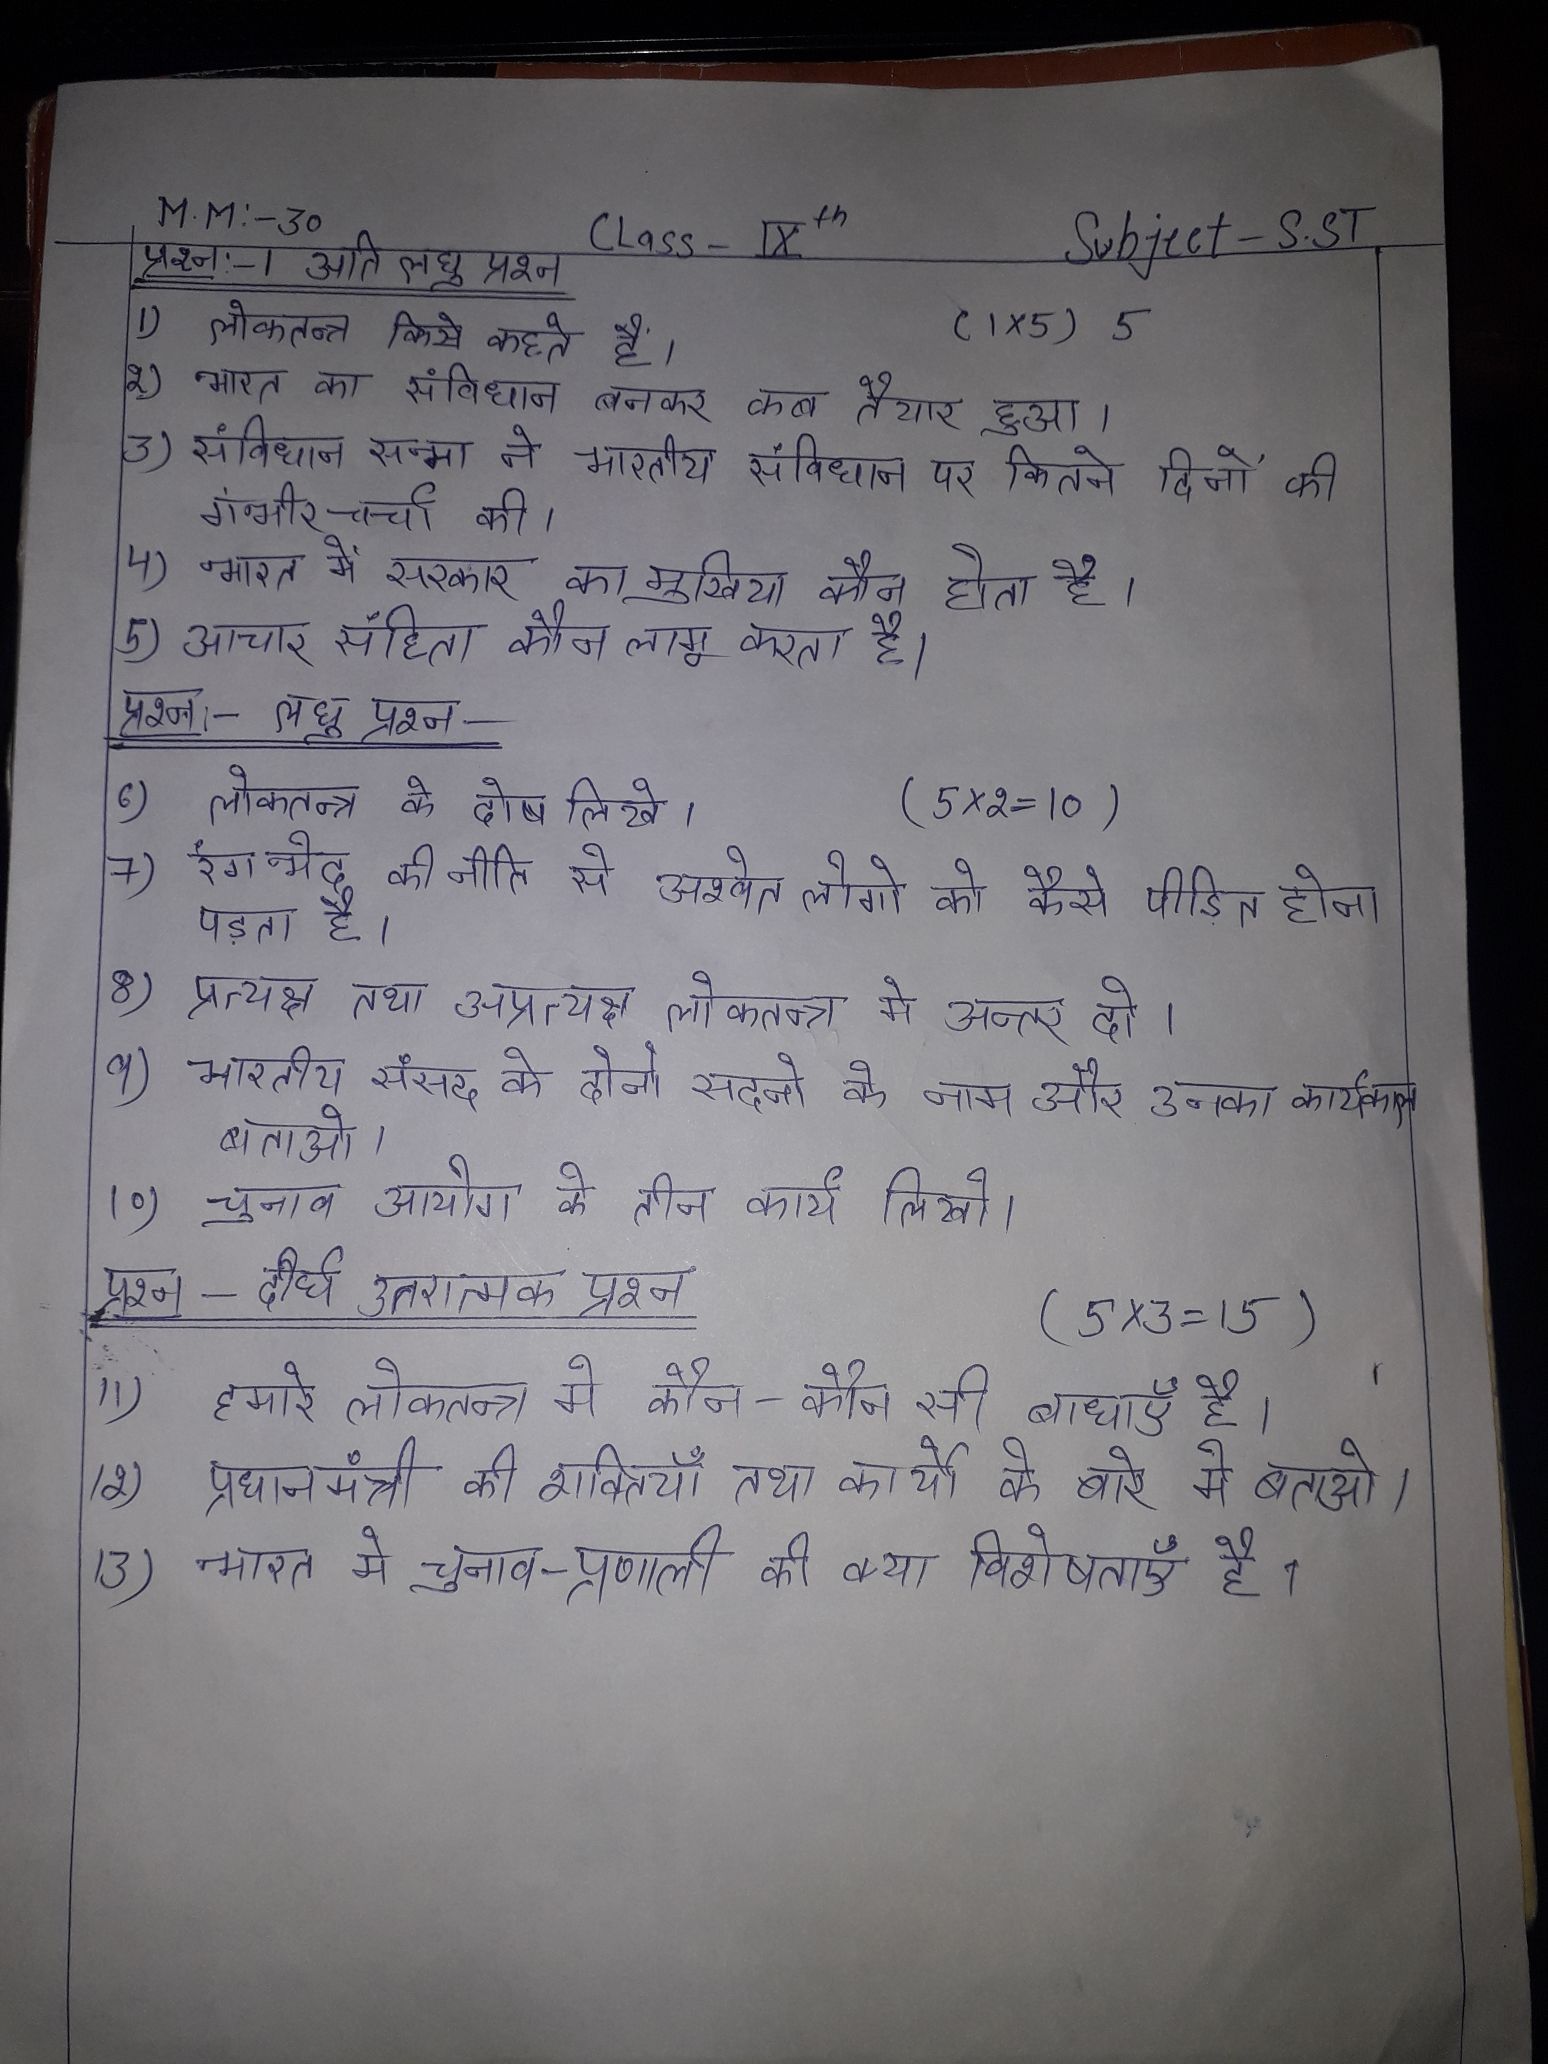 M.M:-30
Class- IXth
Subject - S.ST
प्रश्न:-1 अति लघु प्रश्न
1) लोकतन्त्र किसे कहते हैं। (1x5) 5
2) भारत का संविधान बनकर कब तैयार हुआ।
3) संविधान सभा ने भारतीय संविधान पर कितने दिनों की
गंभीर चर्चा की।
4) भारत में सरकार का मुखिया कौन होता है।
5) आचार संहिता कौन लागू करता है।
प्रश्न:- लघु प्रश्न -
6) लोकतन्त्र के दोष लिखे। (5x2=10)
7) रंगभेद की नीति से अश्वेत लोगो को कैसे पीड़ित होना
पड़ता है।
8) प्रत्यक्ष तथा अप्रत्यक्ष लोकतन्त्र मे अन्तर दो।
9) भारतीय संसद के दोनो सदनो के नाम और उनका कार्यकाल
बताओ।
10) चुनाव आयोग के तीन कार्य लिखो।
प्रश्न - दीर्घ उतरात्मक प्रश्न
(5x3=15)
11) हमारे लोकतन्त्र मे कौन-कौन सी बाधाएँ है।
12) प्रधानमंत्री की शक्तियाँ तथा कार्यो के बारे मे बताओ।
13) भारत मे चुनाव-प्रणाली की क्या विशेषताएँ है।